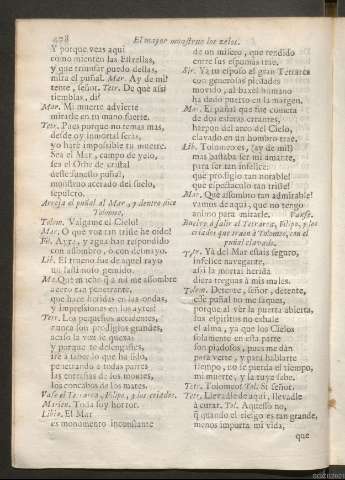 408
El mayor monstruo los zelos.
Y porque veas aqui
como mienten las Estrellas,
y que triunfar puedo dellas,
mira el puñal. Mar. Ay de mi!
tente, señor. Tetr. De que assi
tiemblas, di?
Mar. Mi muerte advierte
mirarle en tu mano fuerte.
Tetr. Pues porque no temas mas,
desde oy inmortal serás,
yo haré impossible tu muerte.
Sea el Mar, campo de yelo,
sea el Orbe de cristal
deste funesto puñal,
monstruo acerado del suelo,
sepulcro.
Arroja el puñal al Mar, y dentro dice
Tolomeo.
Tolom. Valgame el Cielo!
Mar. O que voz tan triste he oido!
Fil. Ayre, y agua han respondido
con assombro, ò con desmayo.
Lib. El trueno fue de aquel rayo
un lastimoso gemido.
Mar. Que mucho q̃ à mi me assombre
acero tan penetrante,
que hace heridas en las ondas,
y impressiones en los ayres!
Tetr. Los pequeños accidentes,
nunca son prodigios grandes,
acaso la voz se quexa:
y porque te desengañes,
iré à saber lo que ha sido,
penetrando à todas partes
las entrañas de los montes,
los concabos de los mares.
Vase el Tetrarca, Filipo, y los criados.
Marien. Toda soy horror.
Libia. El Mar
es monumento inconstante
de un misero, que rendido
entre sus espumas trae.
Sir. Ya tu esposo el gran Tetrarca
con generosas piedades
movido, al baxel humano
ha dado puerto en la margen.
Mar. El puñal que fue cometa
de dos esferas errantes,
harpon del arco del Cielo,
clavado en un hombro trae.
Lib. Tolomeo es, (ay de mi!)
mas bastaba ser mi amante,
para ser tan infelice:
què prodigio tan notable!
què espectaculo tan triste!
Mar. Què assombro tan admirable!
vamos de aqui, que no tengo
animo para mirarle. Vanse.
Buelve à salir el Tetrarca, Filipo, y los
criados que traen à Tolomeo, con el
puñal clavado.
Tetr. Ya del Mar estais seguro,
infelice navegante,
assi la mortal herida
diera treguas à mis males.
Tolom. Detente, señor, detente,
esse puñal no me saques,
porque al ver la puerta abierta,
sus espiritus no exhale
el alma, ya que los Cielos
solamente en esta parte
son piadosos, pues me dàn
para verte, y para hablarte
tiempo, no se pierda el tiempo,
mi muerte, y la tuya sabe.
Tetr. Tolomeo? Tol. Si señor.
Tetr. Llevadle de aqui, llevadle
à curar. Tol. Aquesso no,
q̃ quando el riesgo es tan grande,
menos importa mi vida,
que